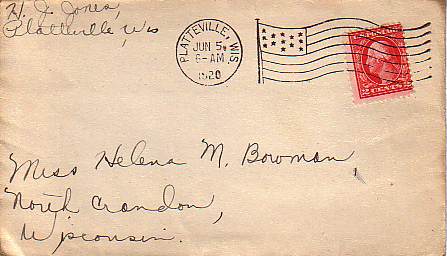 H. J. Jones,
Platteville, Wis
PLATTEVILLE, WIS.
JUN 5
6-AM
1920
2 CENTS 2
Miss Helena M. Bowman,
North Crandon,
Wisconsin.